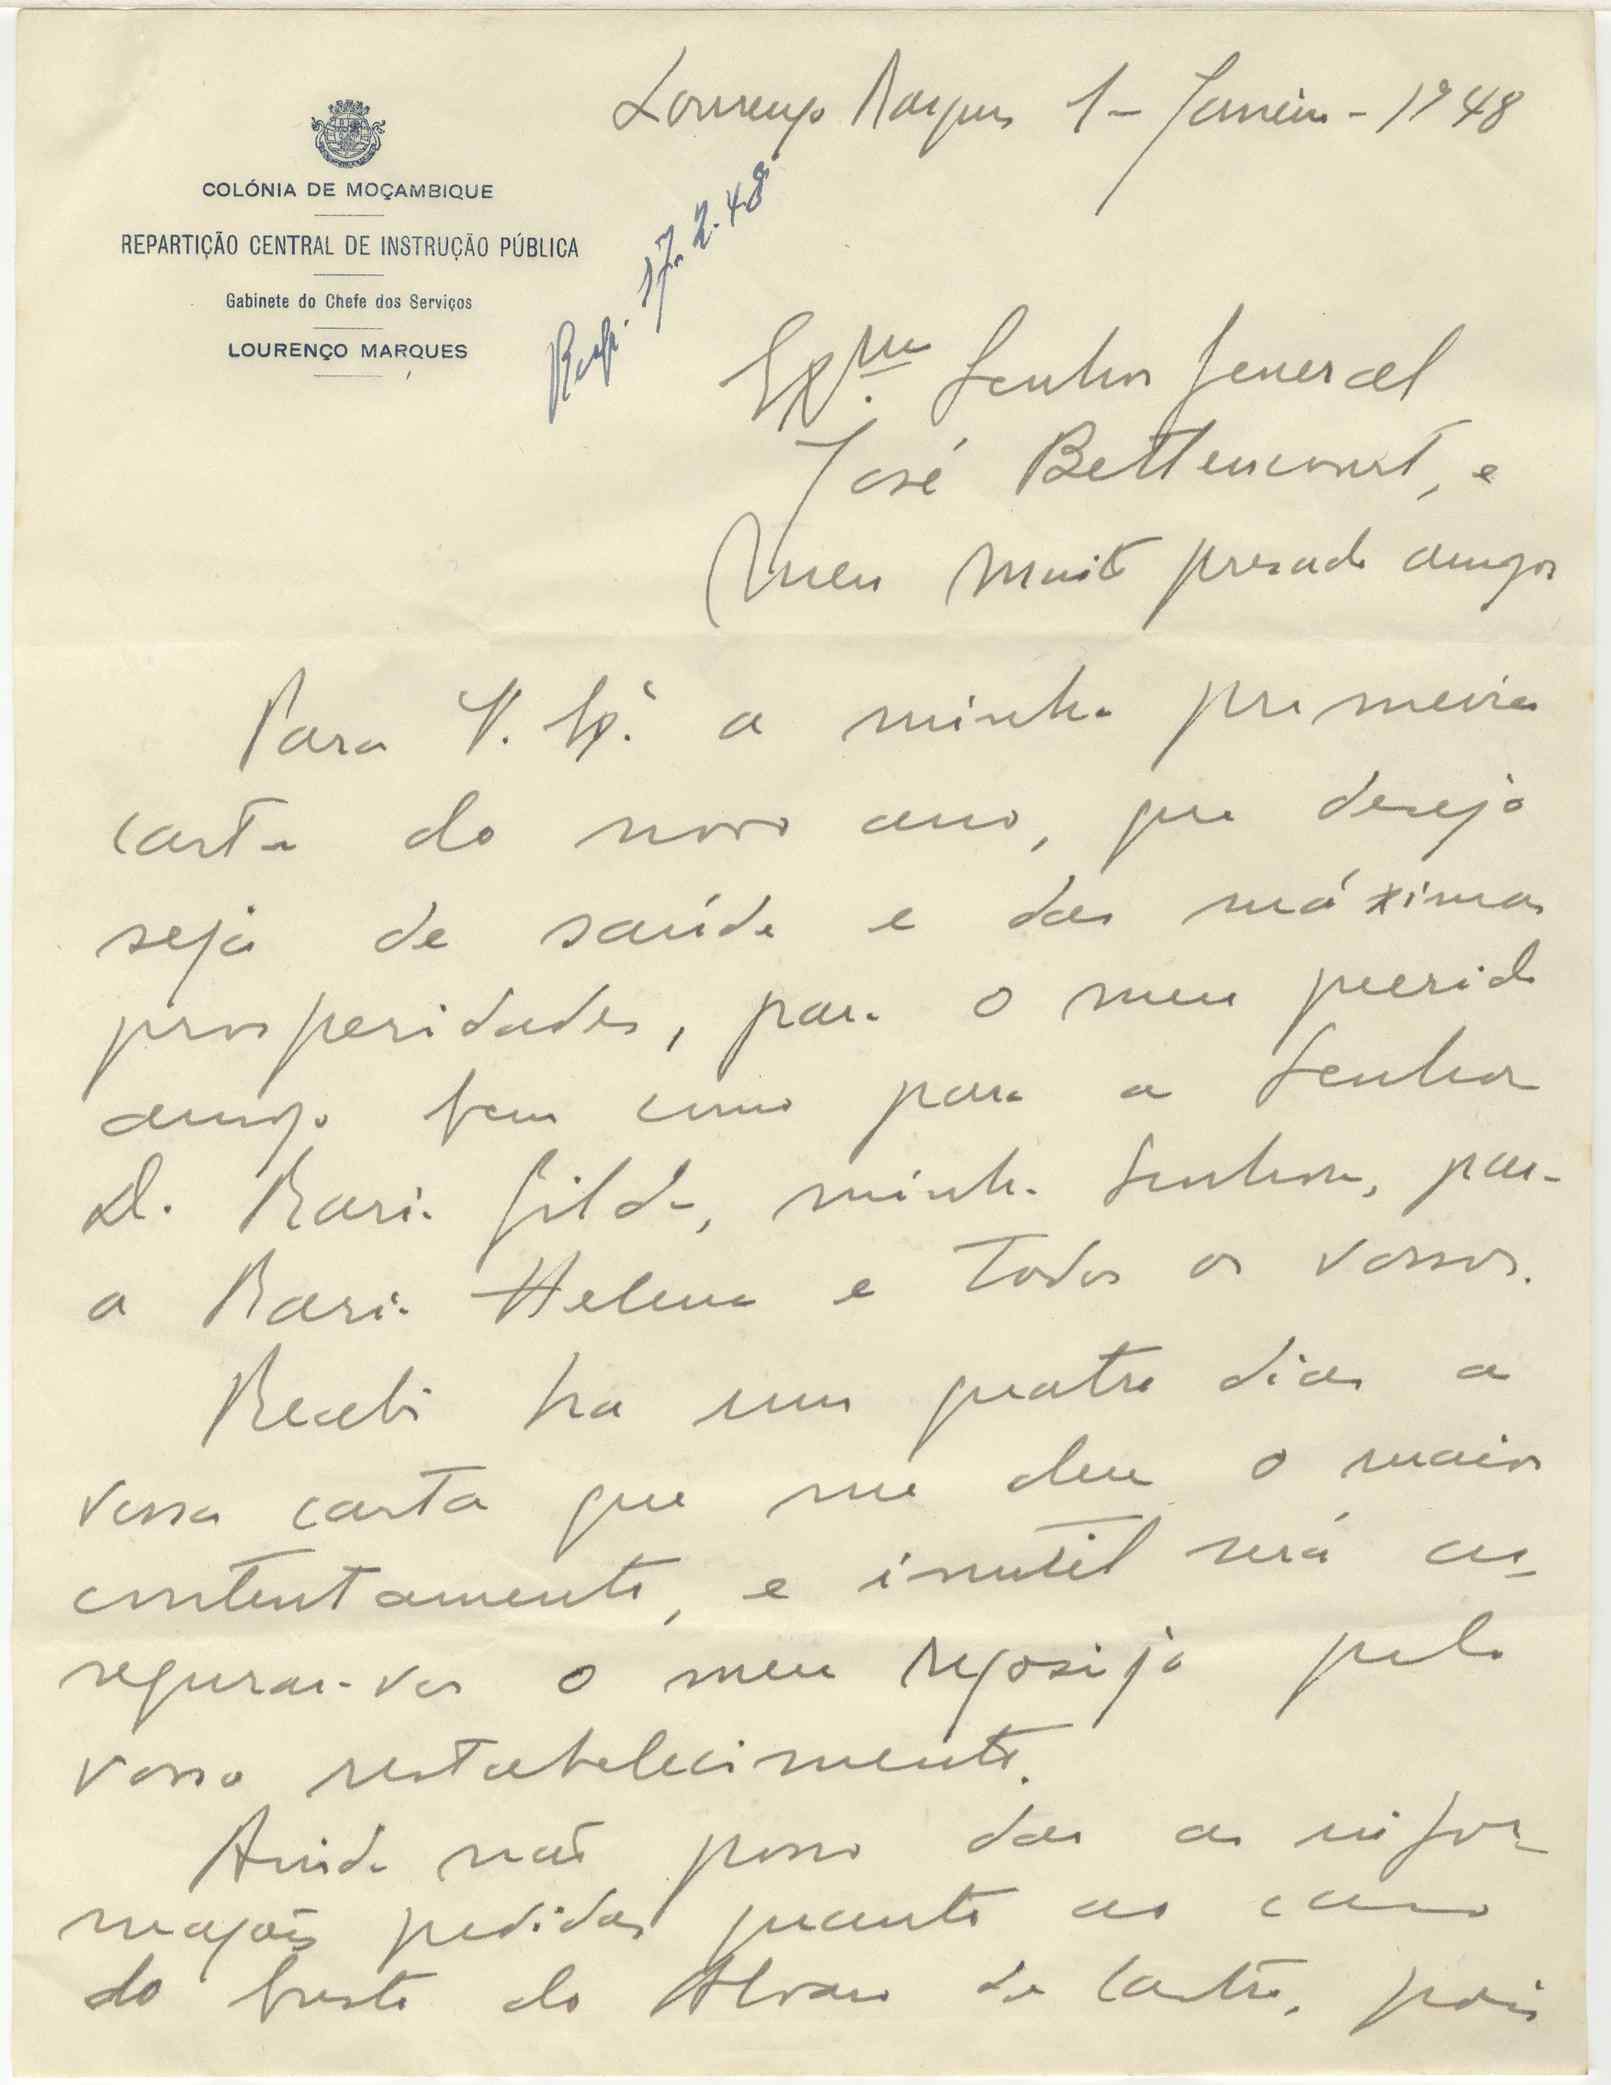 COLÓNIA DE MOÇAMBIQUE
REPARTIÇÃO CENTRAL DE INSTRUÇÃO PÚBLICA
Gabinete do Chefe dos Serviços
LOURENÇO MARQUES
Lourenço Marques 1-Janeiro-1948
Resp. 17.2.48
Exmo. Senhor General
José Bettencourt, e
Meu muito presado amigo
Para V. Exª a minha primeira
carta do novo ano, que desejo
seja de saúde e das máximas
prosperidades, para o meu querido
amigo bem como para a Senhora
D. Maria Gilda, minha Senhora, para
a Maria Helena e todos os vossos.
Recebi ha uns quatro dias a
vossa carta que me deu o maior
contentamento, e inutil será as-
segurar-vos o meu regosijo pelo
vosso restabelecimento.
Ainda não posso dar as infor-
mações pedidas quanto ao caso
do busto do Alvaro de Castro, pois